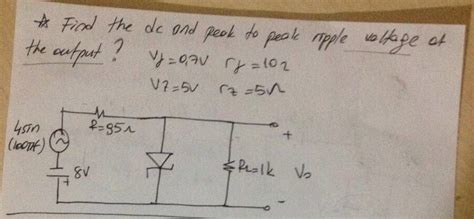 ☆ Find the dc and peak to peak ripple voltage at
the output?
Vf=0,7V rf=10Ω
VZ=5V rz=5Ω
4sin
(100πt)
R=95Ω
8V
+
RL=1k
+
Vo
-